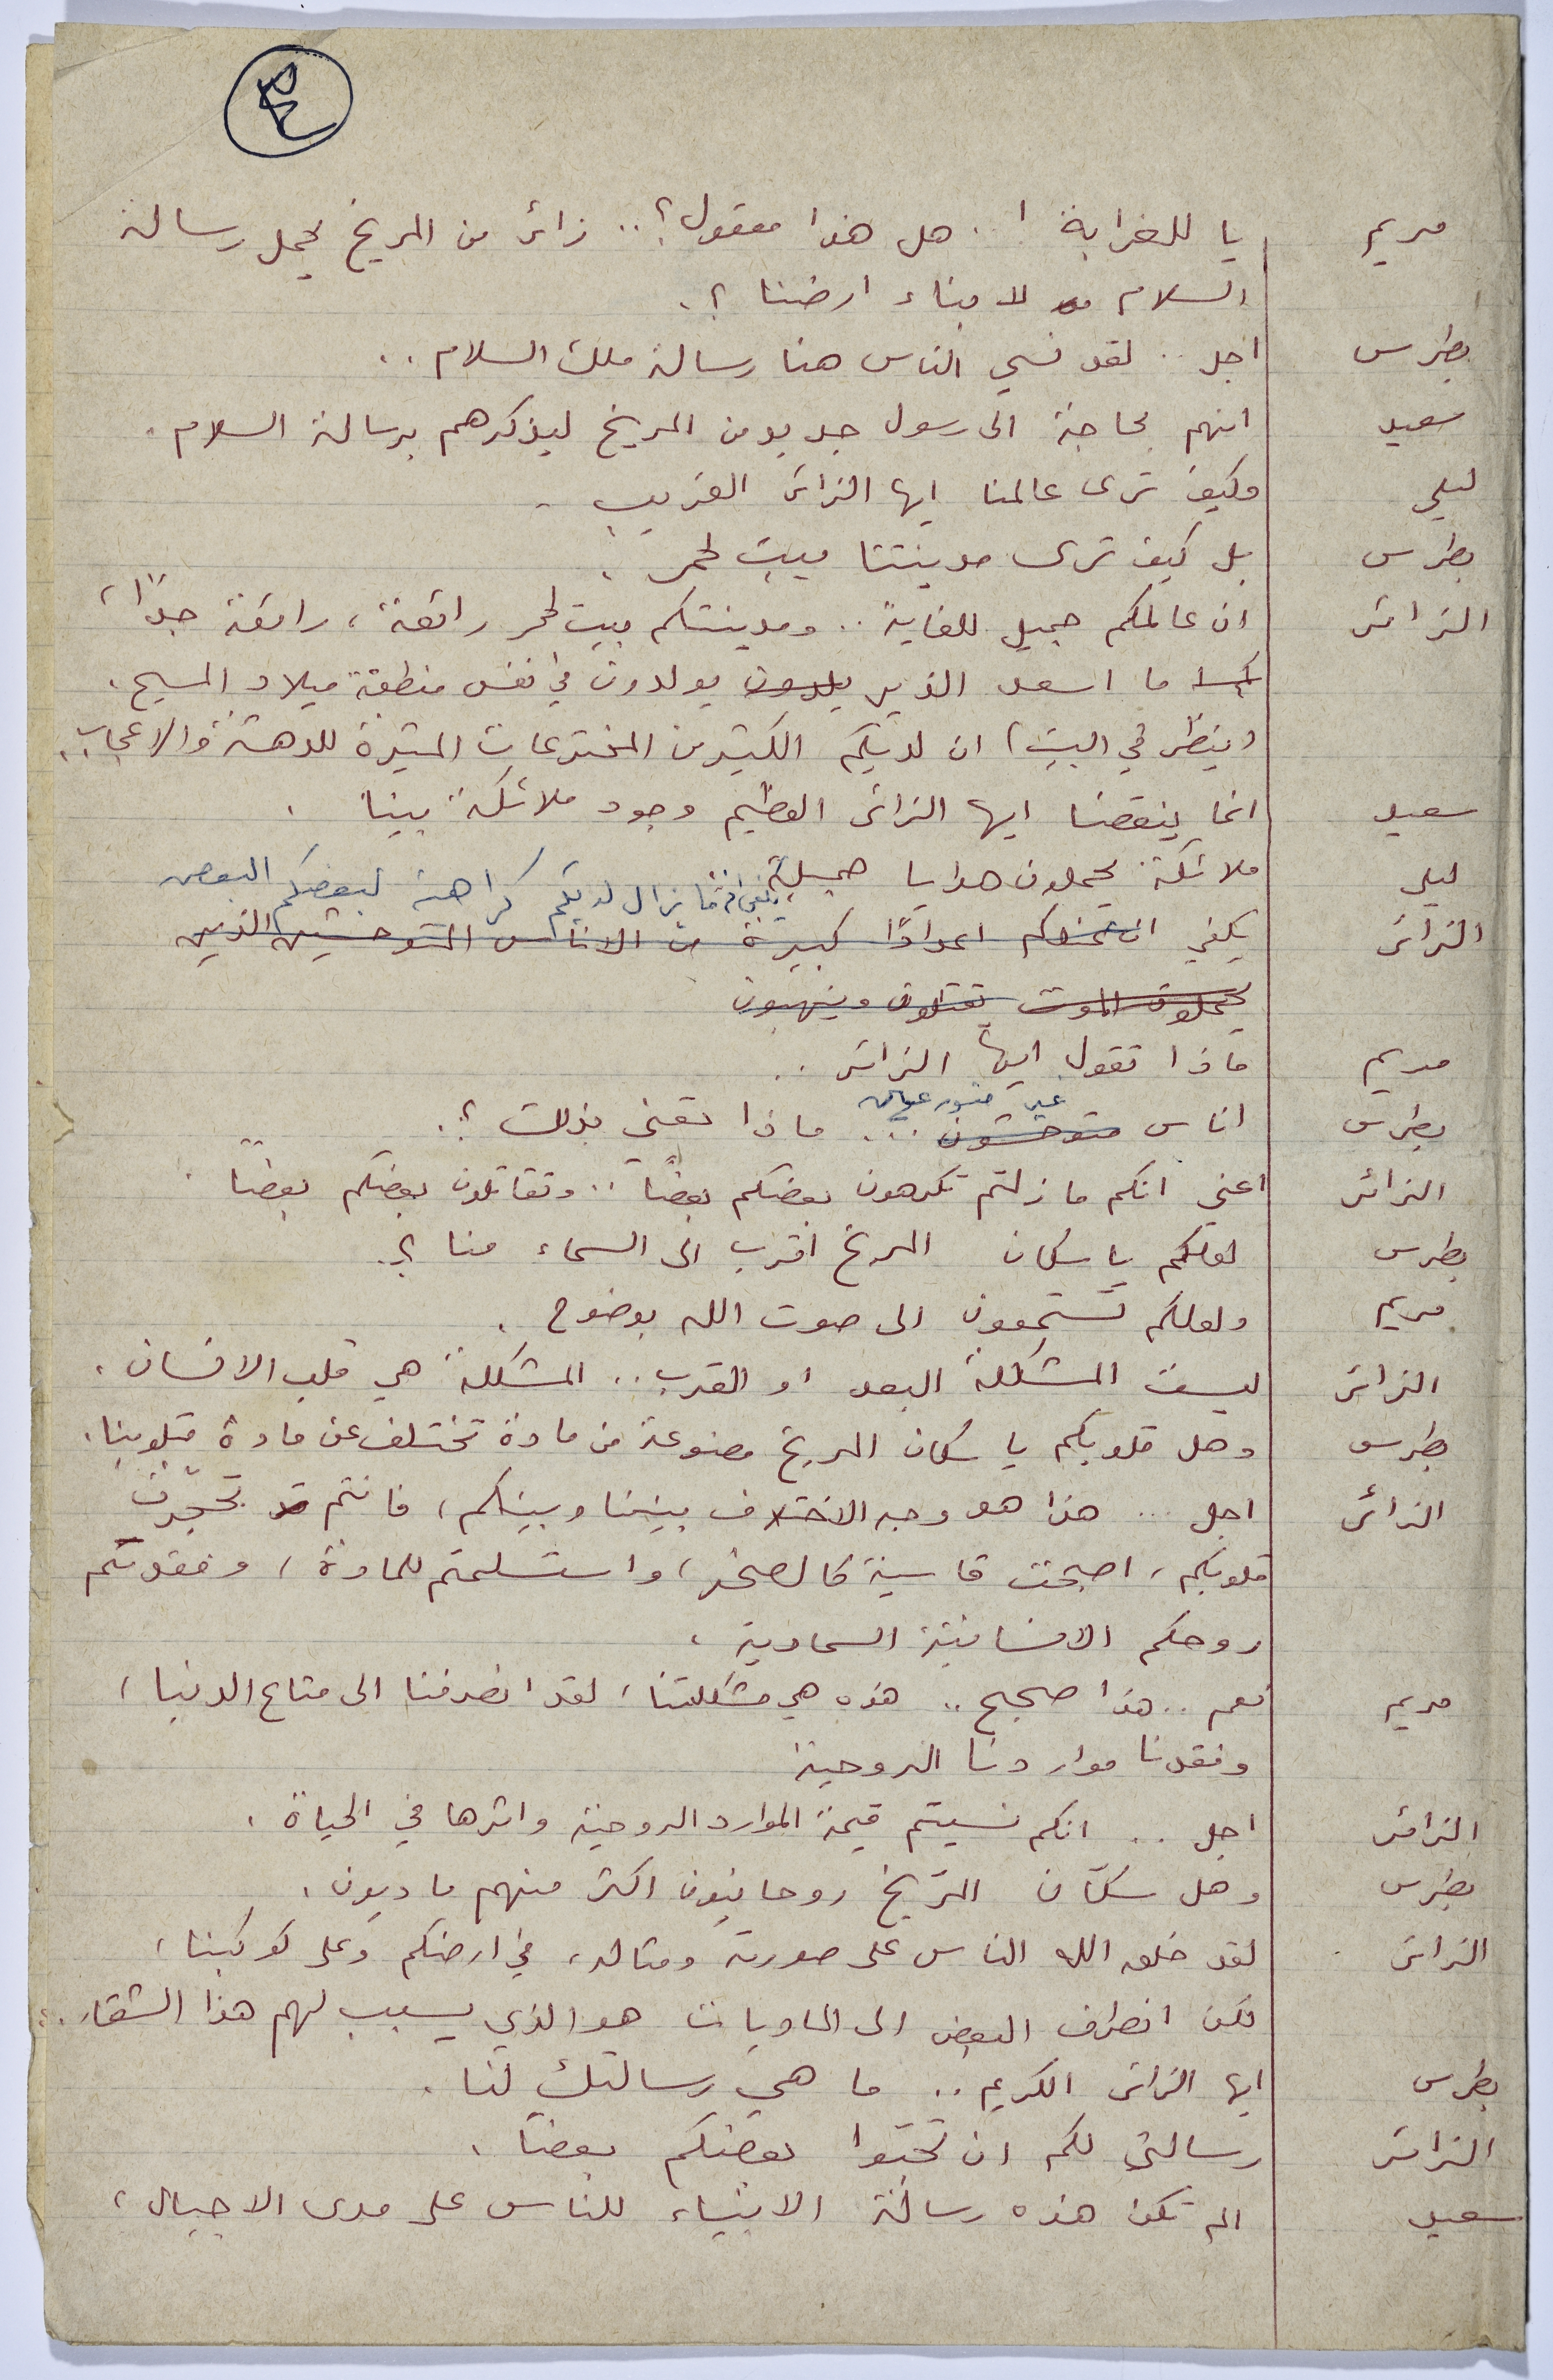 مريم يا للغرابة !.. هل هذا معقول؟.. زائر من المريخ يحمل رسالة
السلام لابناء ارضنا ؟.
بطرس اجل .. لقد نسي الناس هنا رسالة ملك السلام ..
سعيد انهم بحاجة الى رسول جديد من المريخ ليذكرهم برسالة السلام .
ليلى وكيف ترى عالمنا ايها الزائر الغريب .
بطرس بل كيف ترى مدينتنا بيت لحم .
الزائر ان عالمكم جميل للغاية .. ومدينتكم بيت لحم رائعة ، رائعة جدًا ،
ما اسعد الذين يولدون في نفس منطقة ميلاد المسيح .
(ينظر في البيت) ان لديكم الكثير من المخترعات المثيرة للدهشة والاعجاب ..
سعيد انما ينقصنا ايها الزائر العظيم وجود ملائكة بيننا .
ليلى ملائكة يحملون هدايا جميلة
ما يزال لديكم كراهية لبعضكم البعض
الزائر يكفي ان عندكم اعدادًا كبيرة من الاناس المتوحشين الذين
يحملون الموت يقتلون وينهبون
مريم ماذا تقول ايها الزائر ..
غير
بطرس اناس متوحشون ... ماذا تعني بذلك ؟.
الزائر اعني انكم ما زلتم تكرهون بعضكم بعضًا .. وتقاتلون بعضكم بعضًا .
بطرس لعلكم يا سكان المريخ اقرب الى السماء منا ؟.
مريم ولعلكم تستمعون الى صوت الله بوضوح .
الزائر ليست المشكلة البعد او القرب .. المشكلة هي قلب الانسان .
بطرس وهل قلوبكم يا سكان المريخ مصنوعة من مادة تختلف عن مادة قلوبنا .
الزائر اجل ... هذا هو وجه الاختلاف بيننا وبينكم ، فانتم قد تحجرت
قلوبكم ، اصبحت قاسية كالصخر ، واستسلمتم للمادة ، وفقدتم
روحكم الانسانية السماوية .
مريم نعم .. هذا صحيح .. هذه هي مشكلتنا ، لقد انصرفنا الى متاع الدنيا ،
وفقدنا مواردنا الروحية
الزائر اجل .. انكم نسيتم قيمة الموارد الروحية واثرها في الحياة .
بطرس وهل سكّان المرّيخ روحانيون اكثر منهم ماديون .
الزائر لقد خلق الله الناس على صورته ومثاله ، في ارضكم وعلى كوكبنا ،
لكن انصراف البعض الى الماديات هو الذي يسبب لهم هذا الشقاء ..
بطرس ايها الزائر الكريم .. ما هي رسالتك لنا .
الزائر رسالتي لكم ان تحبّوا بعضكم بعضًا .
سعيد الم تكن هذه رسالة الانبياء للناس على مدى الاجيال ،